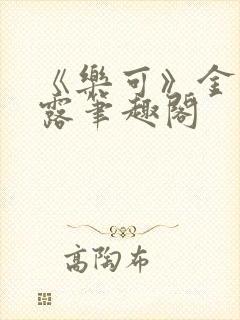 《樂可》金
露筆趣閣
高陶布